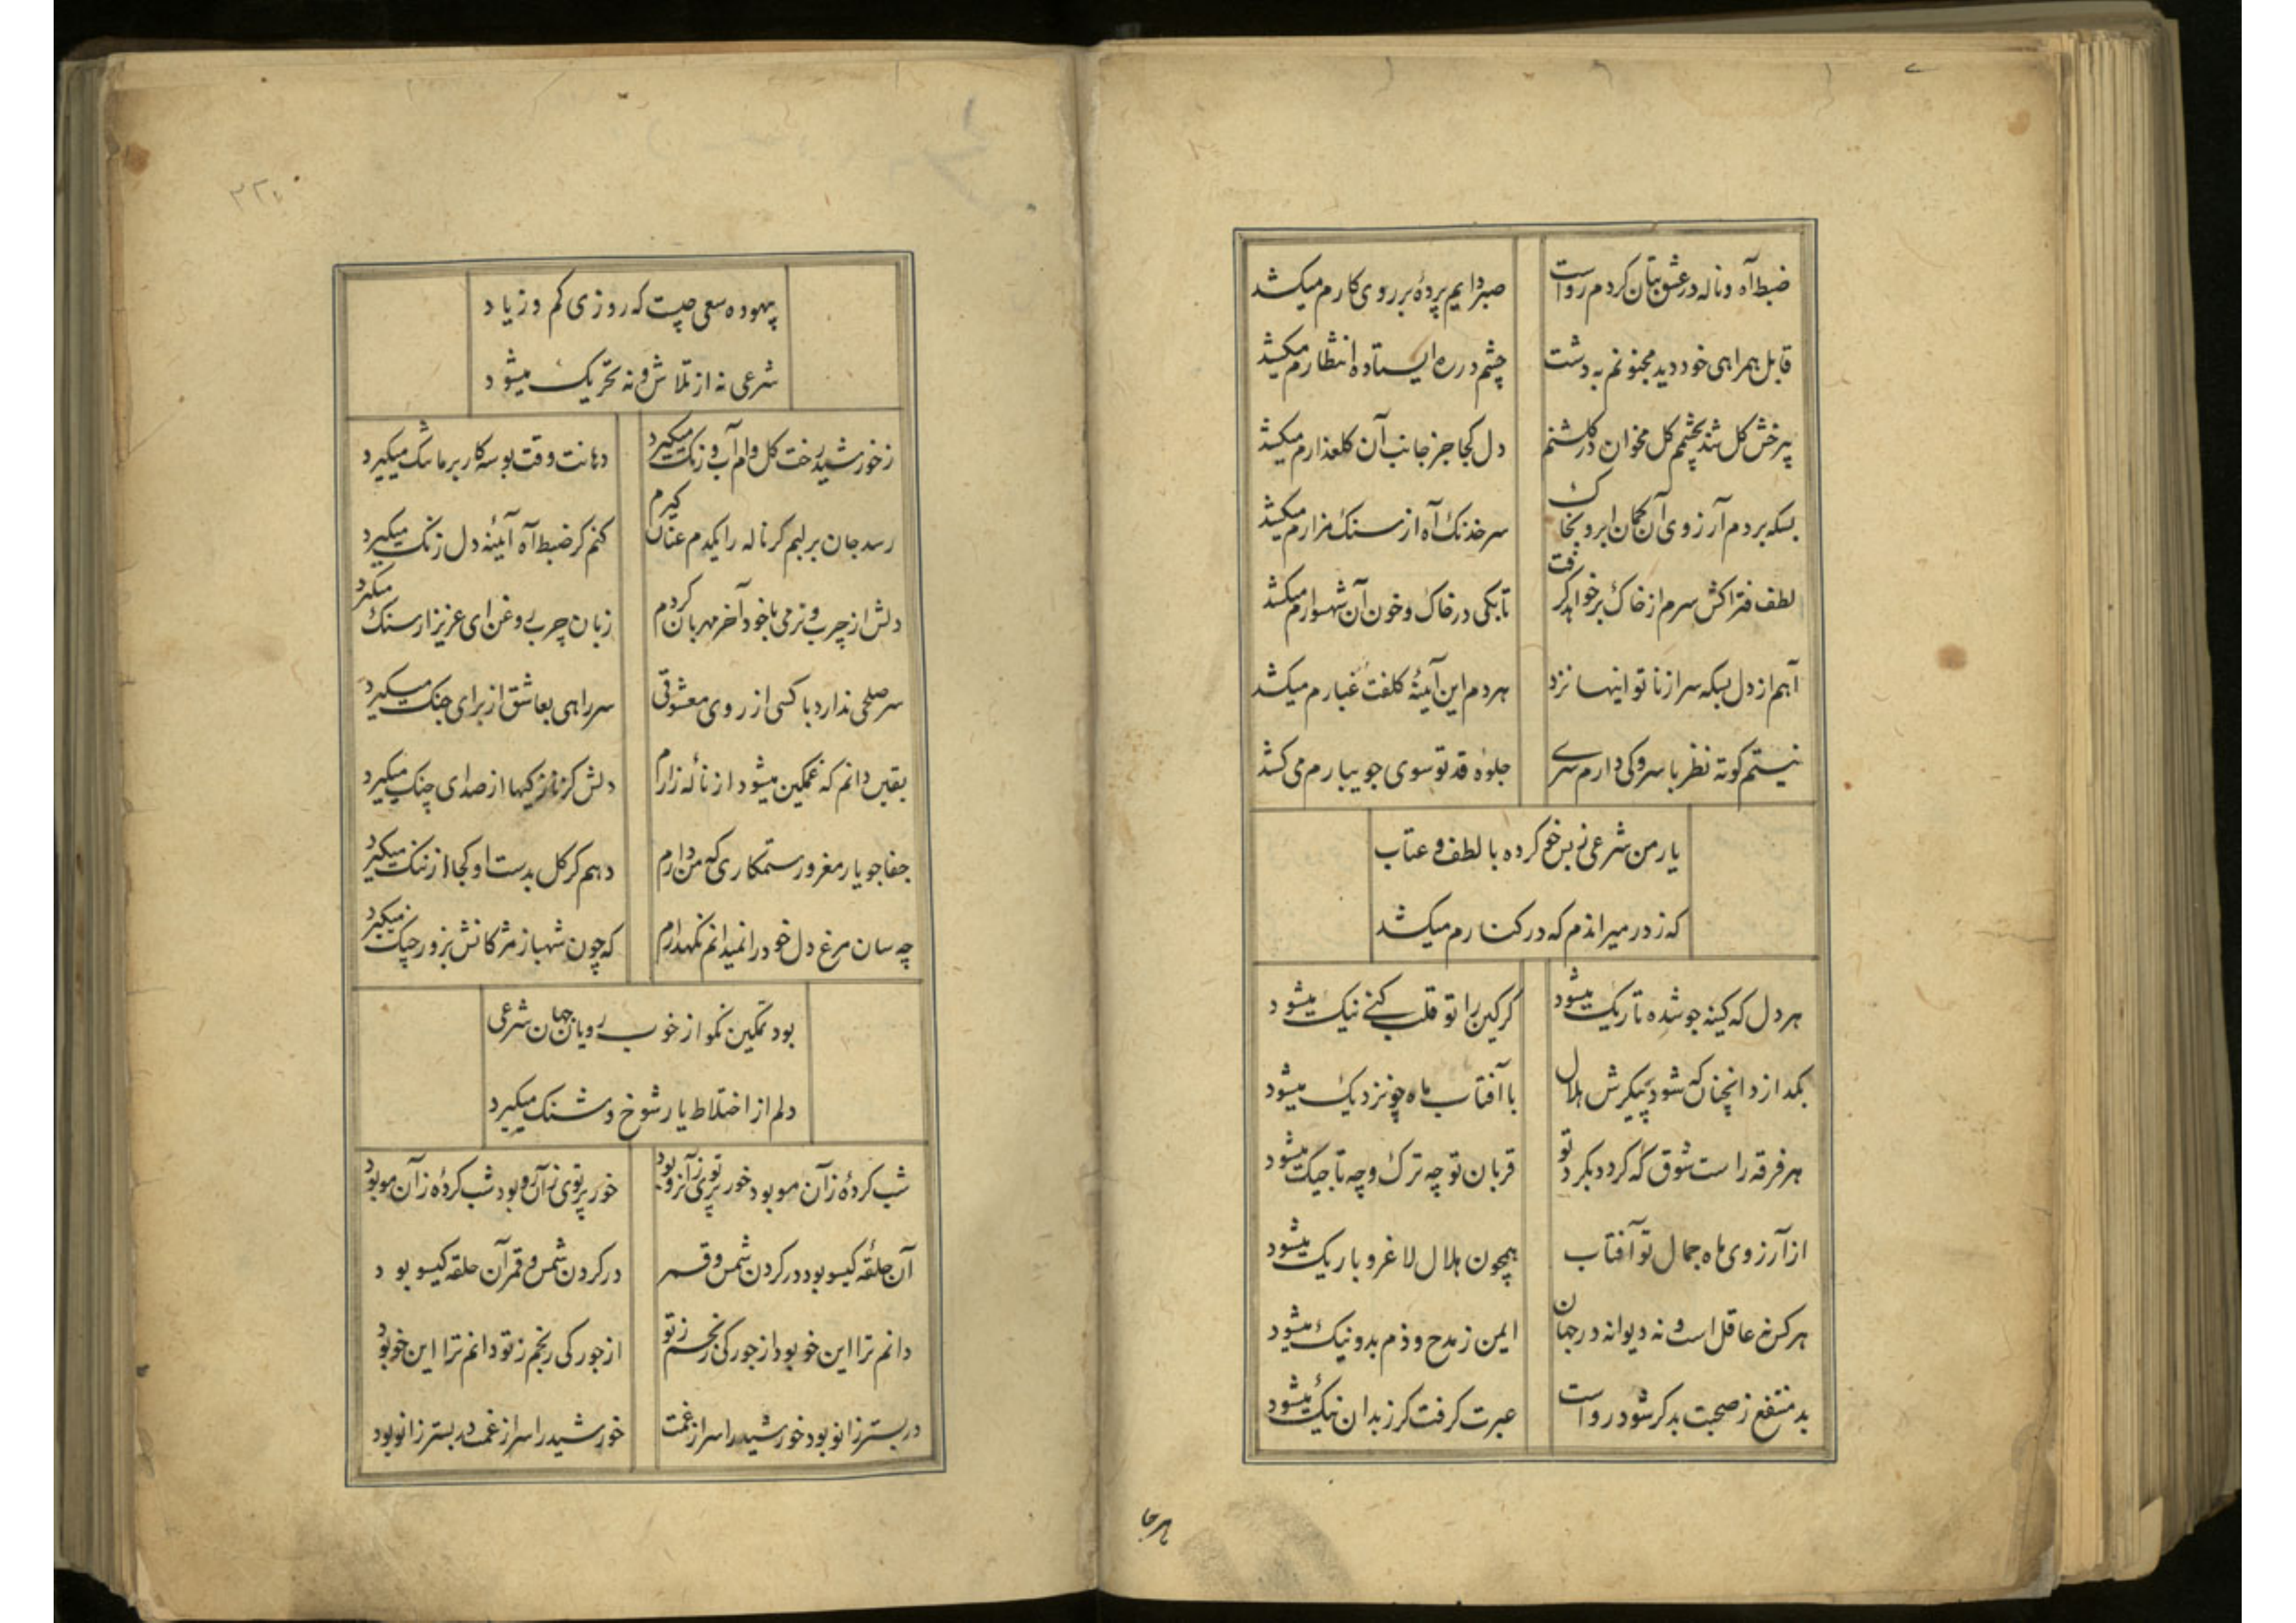 ضبط آه و ناله در عشق بتان کردم رواست صبر دایم پردهٔ بر روی کارم میکشد
قابل همراهی خود دید مجنونم به دشت چشم در ره ایستاده انتظارم میکشد
پر خش کل شد بچشم کل مخوان در کلشنم دل کجا جز جانب آن کلعذارم میکشد
بسکه بردم آرزوی آن کمان ابرو بخاک سر خدنک آه از سنک مزارم میکشد
لطف فتراکش سرم از خاک بر خواهد کرفت تا بکی در خاک و خون آن شهسوارم میکشد
آهم از دل بسکه سر از ناتوانیها نزد هر دم این آینهٔ کلفت غبارم میکشد
نیستم کوته نظر با سرو کی دارم سری جلوه قد تو سوی جویبارم می کشد
یار من شرعی ز بس خو کرده با لطف و عتاب
که ز در میراندم که در کنارم میکشد
هر دل که کینه جو شده تاریک میشود کر کین را تو قلب کنی نیک میشود
بکدازد انچنان که شود پیکرش هلال با آفتاب ماه چو نزدیک میشود
هر فرقه راست شوق که کردد بکرد تو قربان تو چه ترک و چه تاجیک میشود
از آرزوی ماه جمال تو آفتاب همچون هلال لاغر و باریک میشود
هر کس نه عاقل است و نه دیوانه در جهان ایمن ز مدح و ذم بد و نیک میشود
بد منتفع ز صحبت بد کر شود رواست عبرت کرفت کر ز بدان نیک میشود
هرجا
بیهوده سعی چیست که روزی کم و زیاد
شرعی نه از تلاش و نه تحریک میشود
ز خورشید رخت کل وام آب و رنک میکیرد دهانت وقت بوسه کار بر ما تنک میکیرد
رسد جان بر لبم کر ناله را یکدم عنان کیرم کنم کر ضبط آه آئینه دل زنک میکیرد
دلش از چرب و نرمی با خود آخر مهربان کردم زبان چرب روغن ای عزیز از سنک میکیرد
سر صلحی ندارد با کسی از روی معشوقی سر راهی بعاشق از برای جنک میکیرد
یقین دانم که غمکین میشود از نالهٔ زارم دلش کز نازکیها از صدای چنک میکیرد
جفاجو یار مغرور ستمکاری که من دارم دهم کر کل بدست او کجا از ننک میکیرد
چه سان مرغ دل خود را نمیدانم نکهدارم که چون شهباز مژکانش بزور چنک میکیرد
بود تمکین نکو از خوب رویان جهان شرعی
دلم از اختلاط یار شوخ و شنک میکیرد
شب کردهٔ زآن مو بود خور پرتوی زآن رو بود خور پرتوی زآن رو بود شب کردهٔ زآن مو بود
آن حلقهٔ کیسو بود در کردن شمس و قمر در کردن شمس و قمر آن حلقه کیسو بود
دانم ترا این خو بود از جور کی رنجم ز تو از جور کی رنجم ز تو دانم ترا این خو بود
در بستر زانو بود خورشید را سر از غمت خورشید را سر از غمت در بستر زانو بود